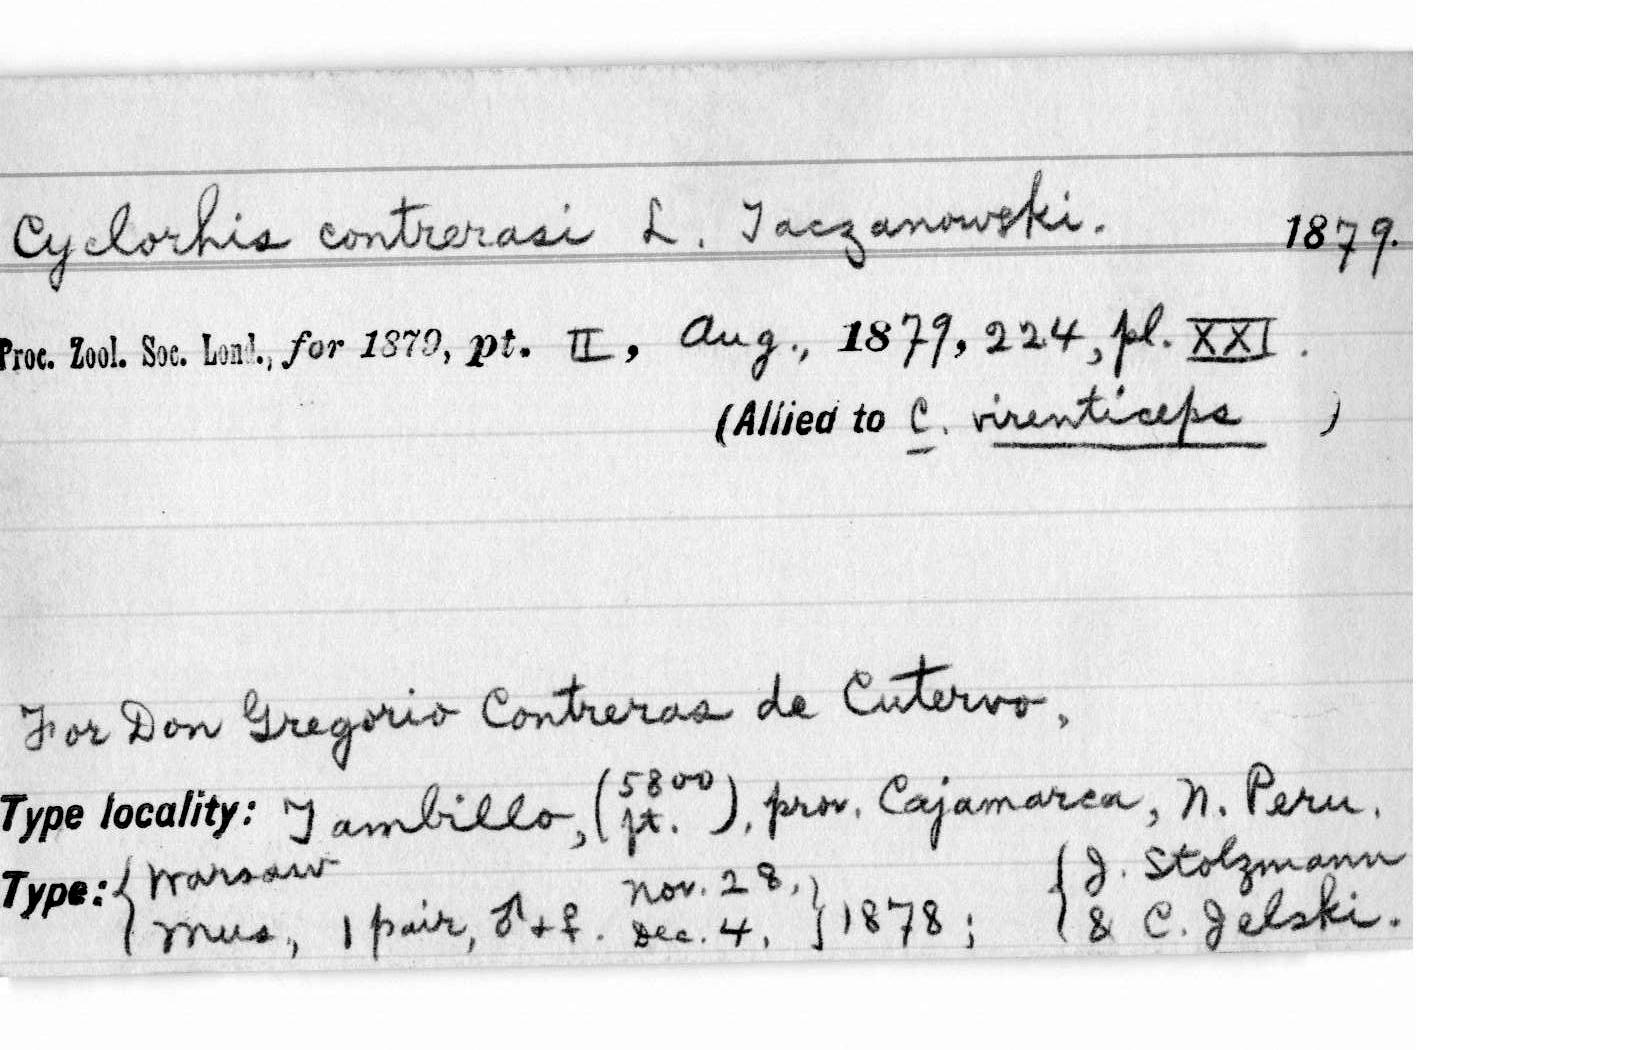 Cyclorhis contrerasi L. Taczanowski. 1879.
Proc. Zool. Soc. Lond., for 1879, pt. II, Aug., 1879, 224, pl. XXI.
(Allied to C. virenticeps )
For Don Gregorio Contreras de Cutervo,
Type locality: Tambillo, (5800 ft.), prov. Cajamarca, N. Peru.
Type: { Warsaw Mus., 1 pair, ♂ + ♀. Nov. 28, Dec. 4, } 1878; { J. Stolzmann & C. Jelski.